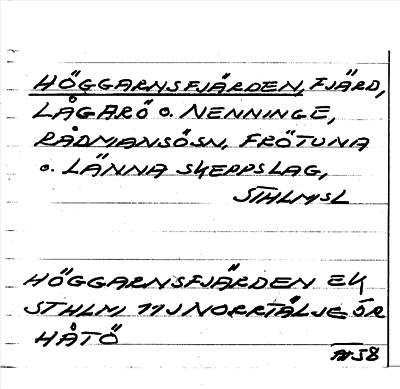 HÖGGARNSFJÄRDEN, FJÄRD,
LÅGARÖ o. NENNINGE,
RÅDMANSÖSN, FRÖTUNA
o. LÄNNA SKEPPSLAG,
STHLMSL
HÖGGARNSFJÄRDEN EK
STHLM 11J NORRTÄLJE ÖR
HÅTÖ
58